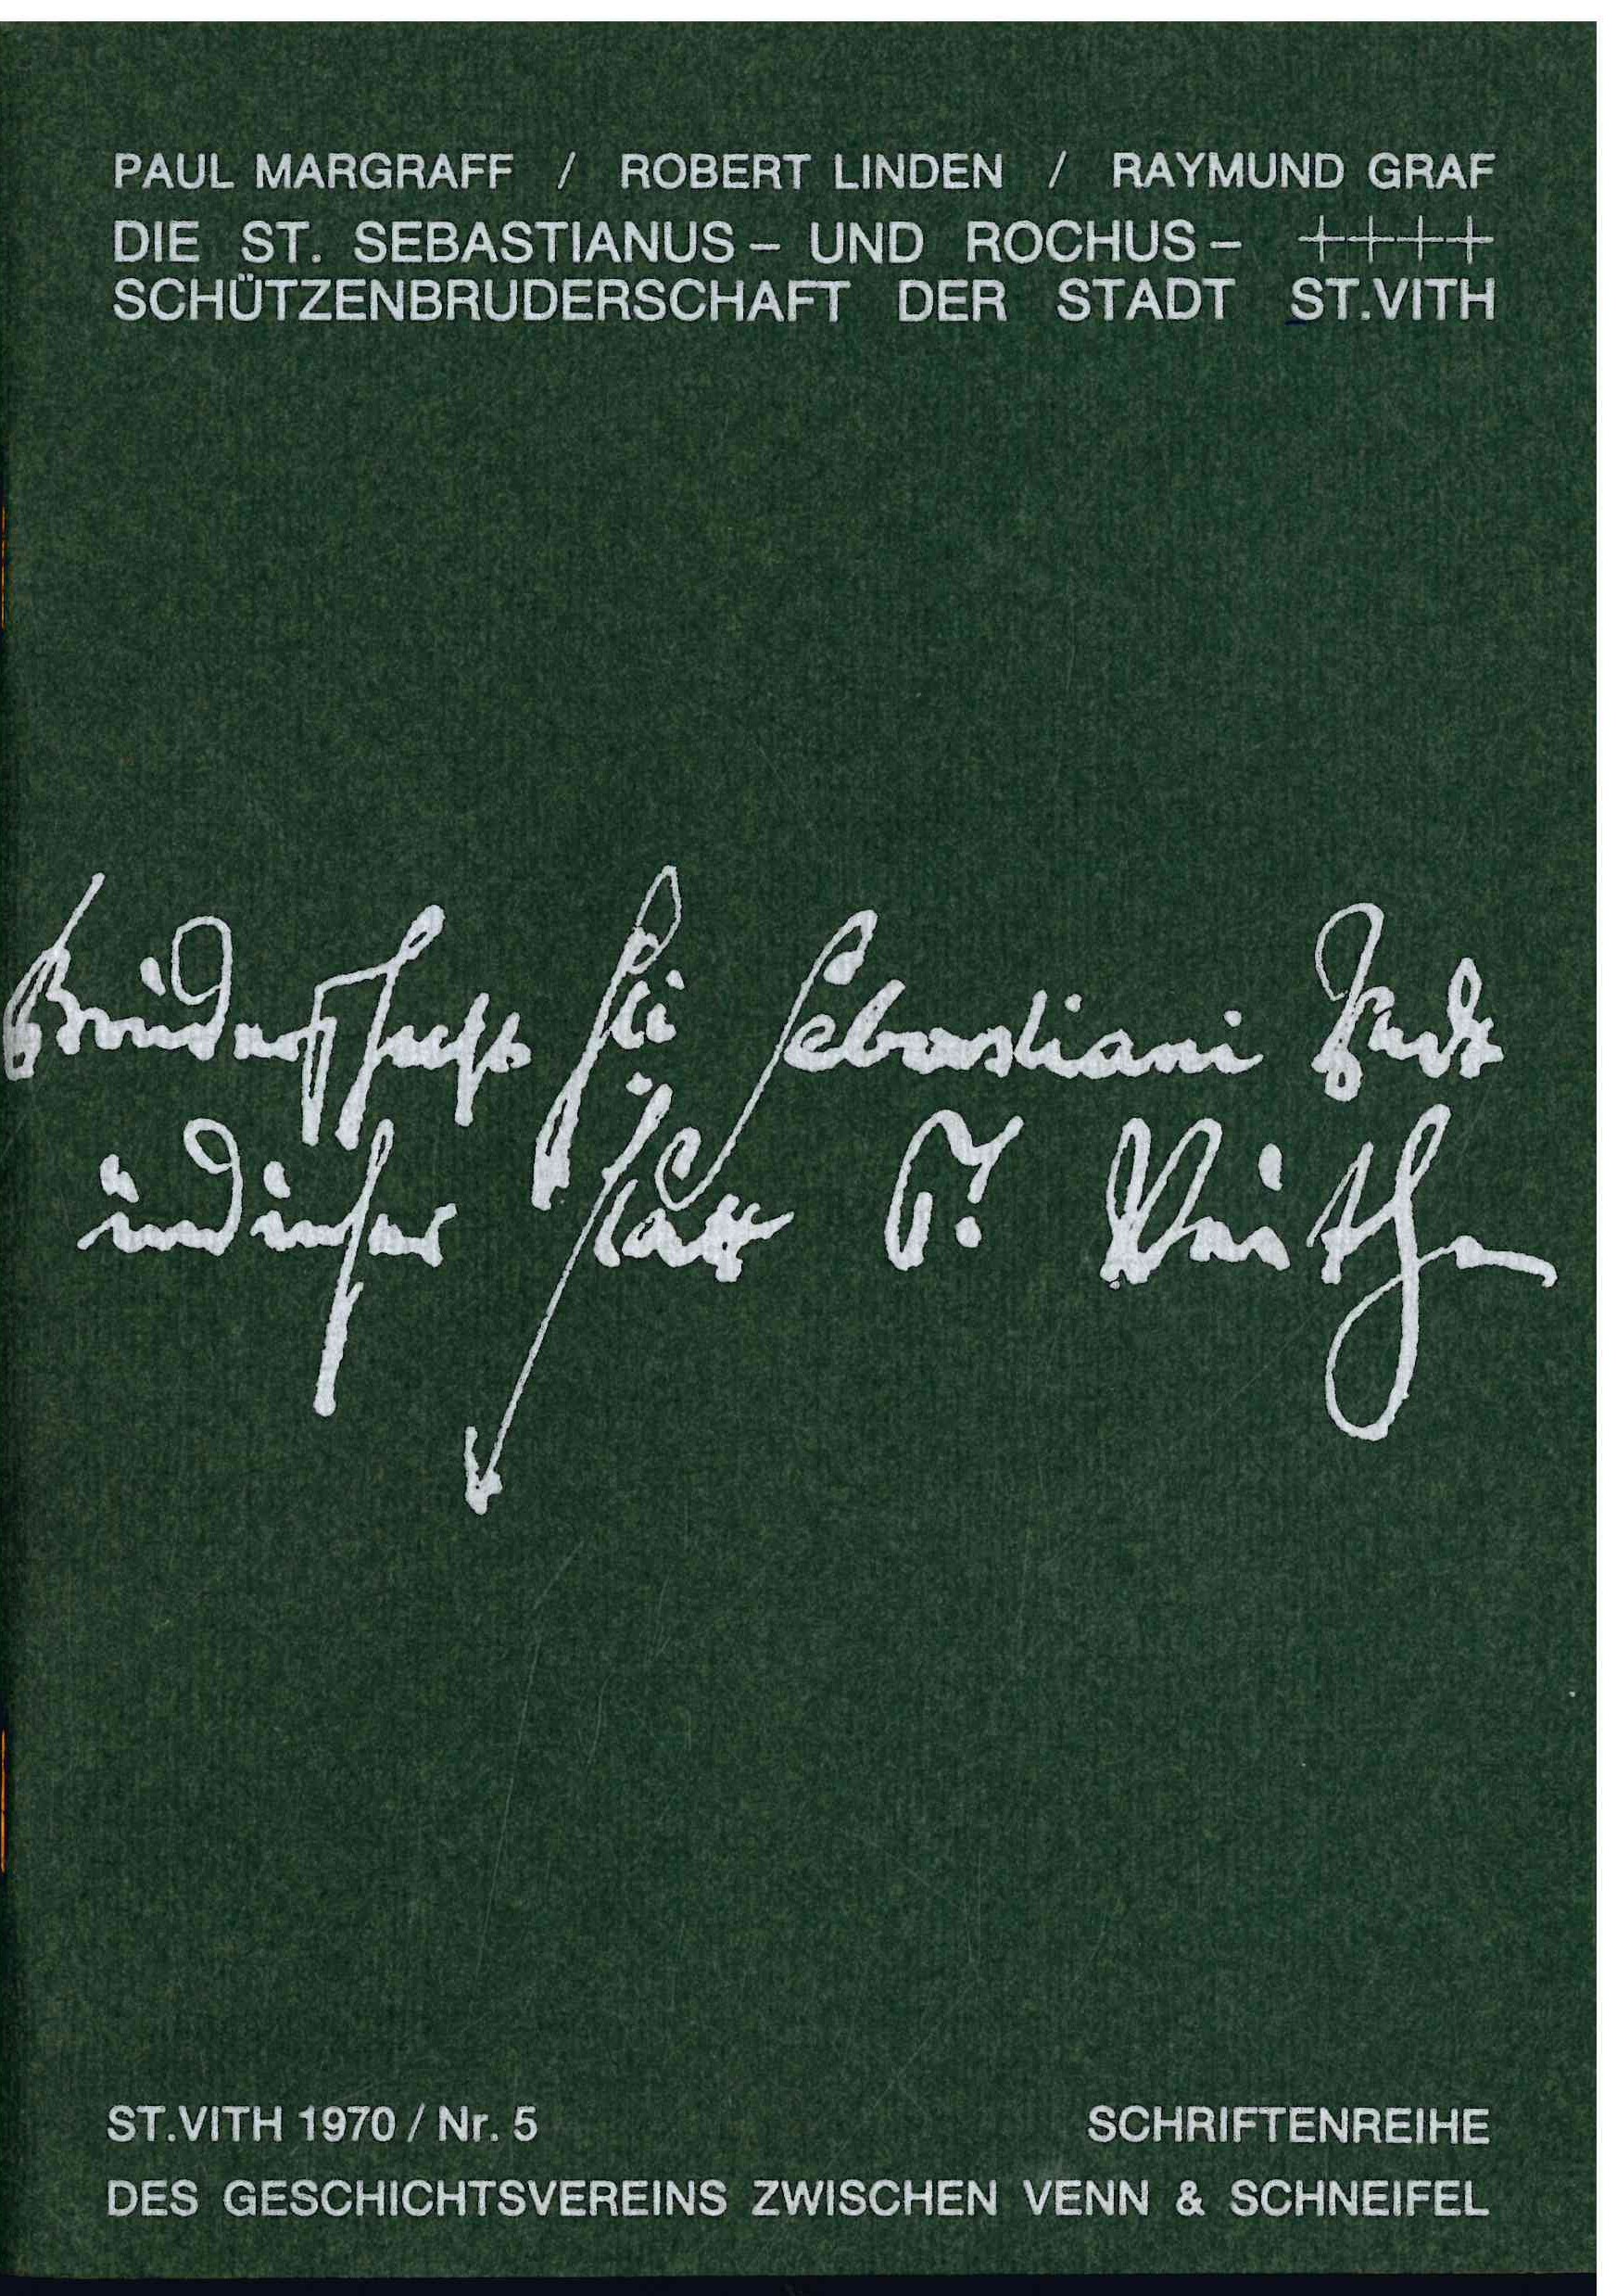 PAUL MARGRAFF / ROBERT LINDEN / RAYMUND GRAF
DIE ST. SEBASTIANUS – UND ROCHUS – ++++
SCHÜTZENBRUDERSCHAFT DER STADT ST.VITH
Bruderschafft Sti Sebastiani
statt St. Veith
ST.VITH 1970 / Nr. 5 SCHRIFTENREIHE
DES GESCHICHTSVEREINS ZWISCHEN VENN & SCHNEIFEL